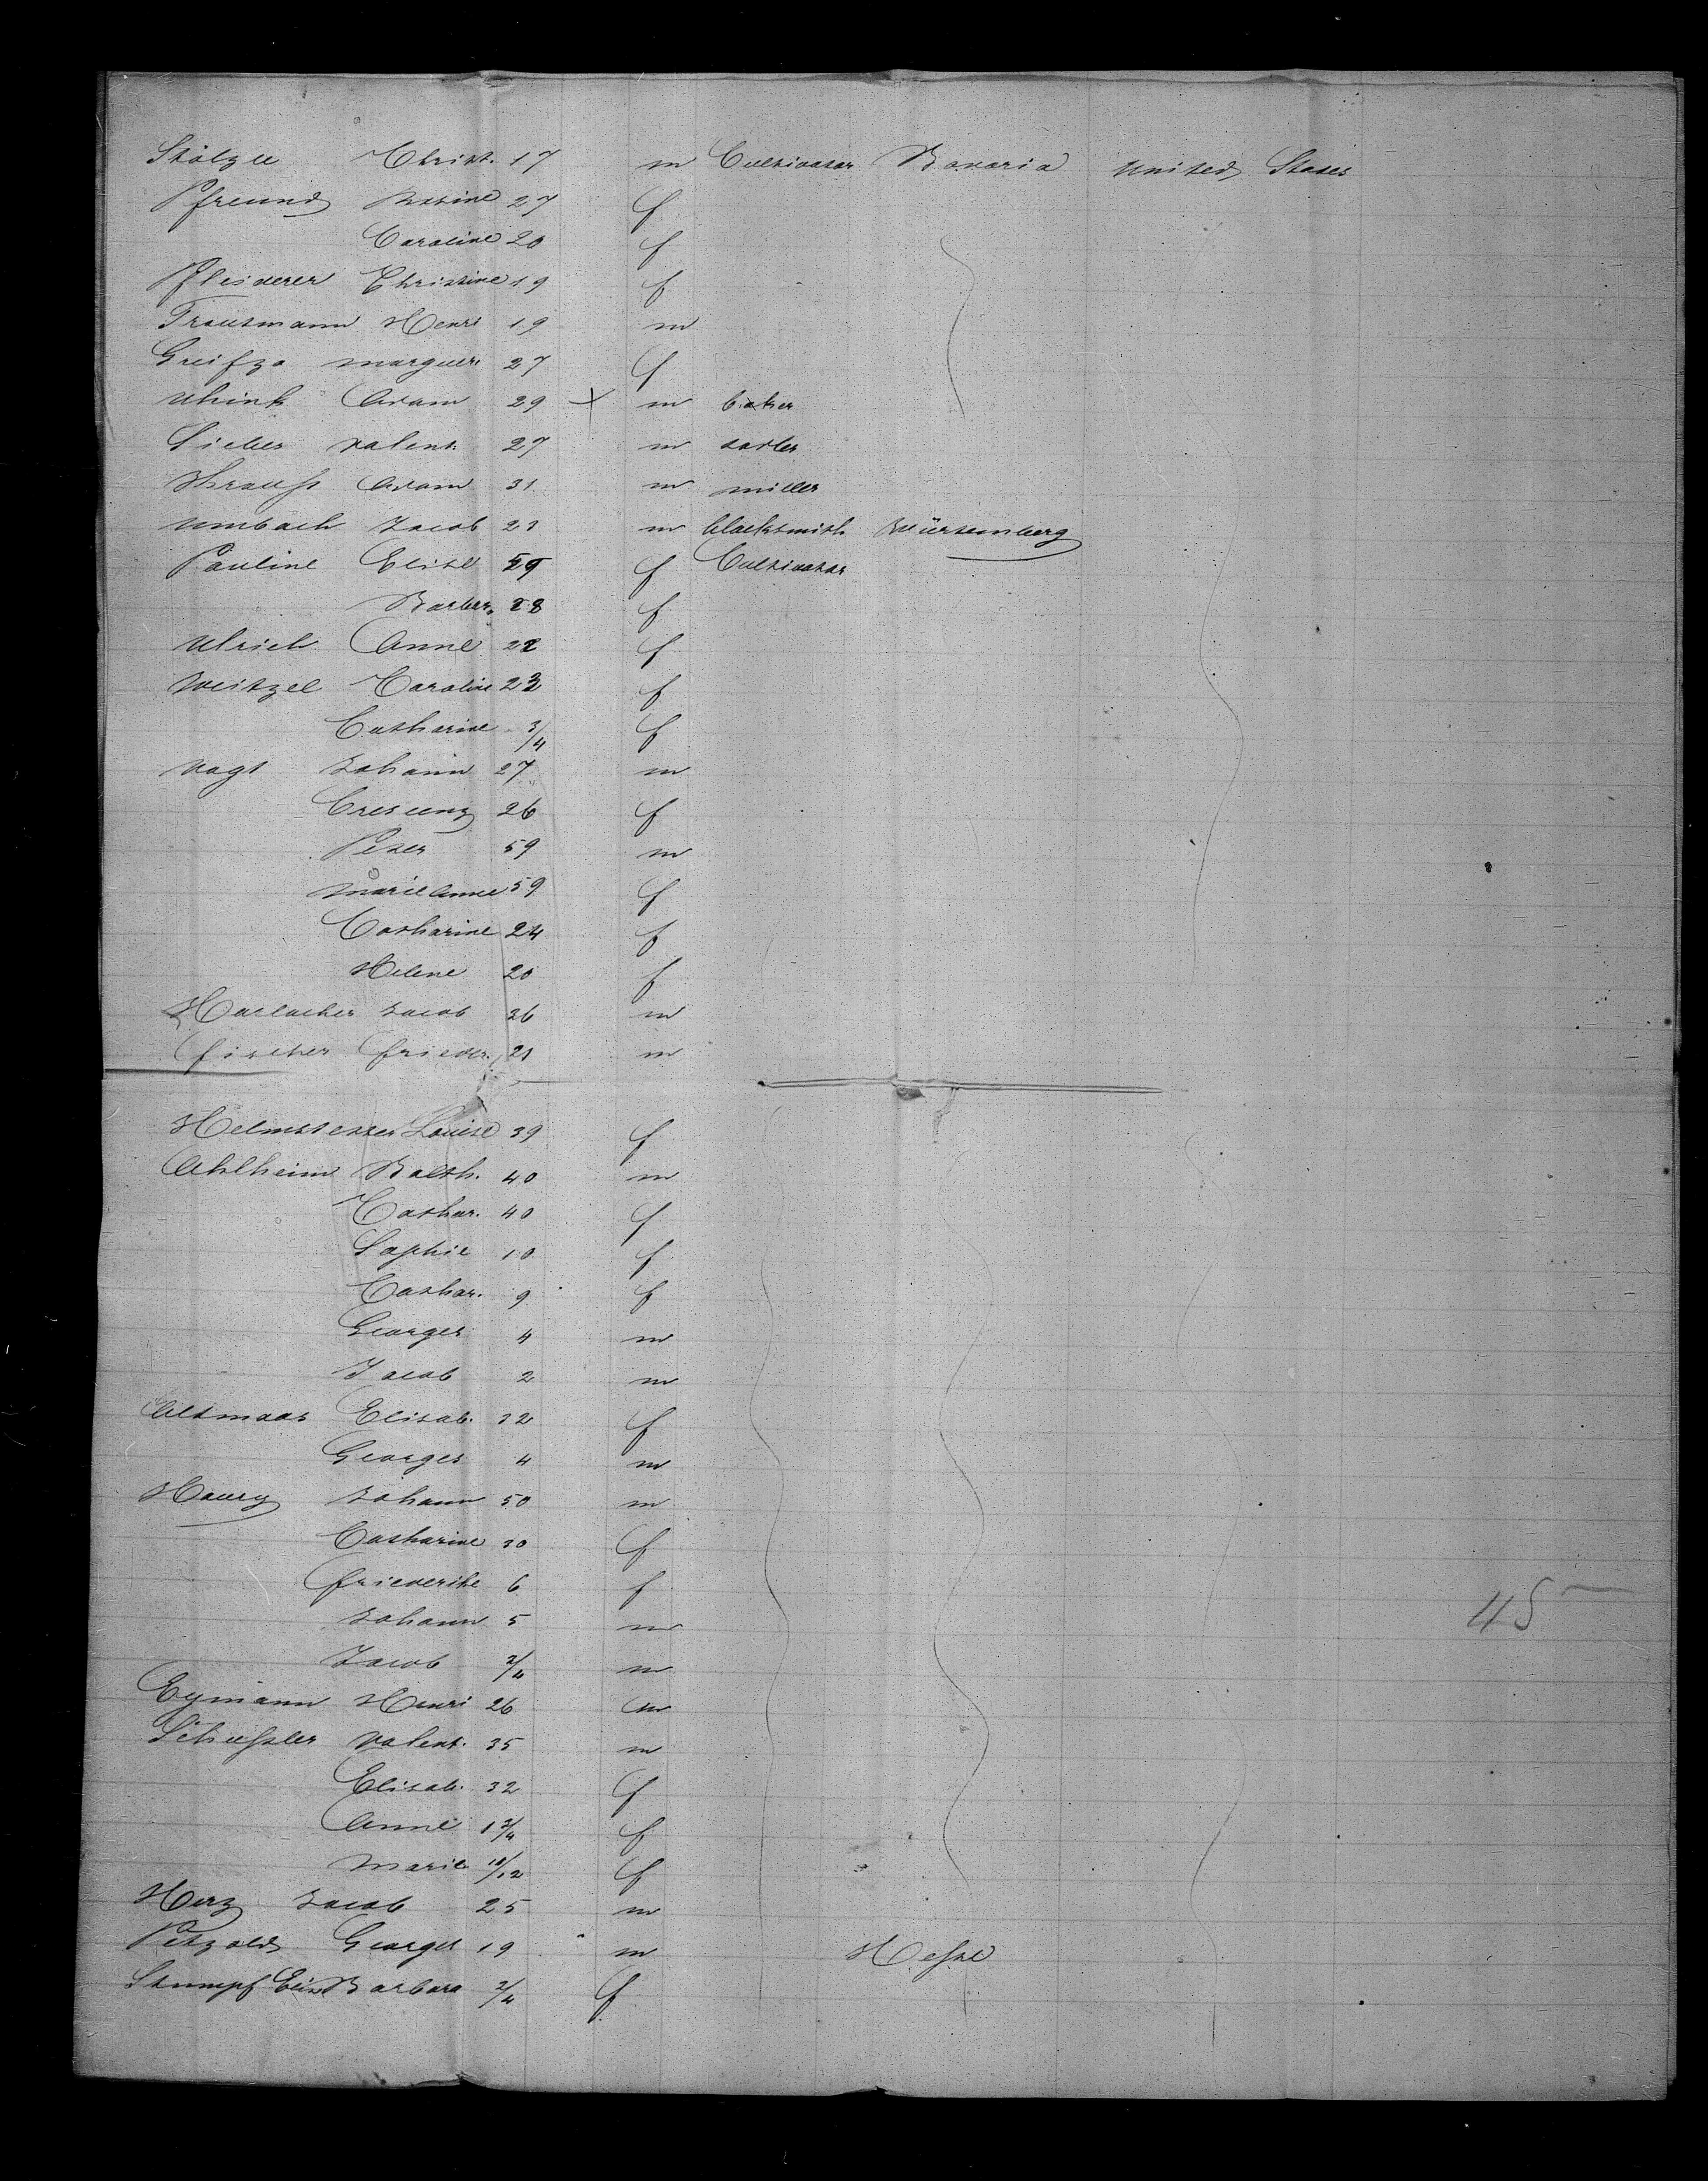 Stölzle Christ. 17 m Cultivator Bavaria United States
Pfreund Rosine 27 f
Caroline 20 f
Pfleiderer Christine 19 f
Trautmann Henri 19 m
Greifzo marguer. 27 f
Uhink Adam 29 + m baker
Sieber valent. 27 m sadler
Strauß Adam 31 m miller
Umbach Jacob 23 m blacksmith Würtemberg
Pauline Elise f Cultivator
Barbar. 28 f
Ulrich Anne 22 f
Weitzel Caroline 23 f
Catharine 3/4 f
Vogt Johann 27 m
Crescenz 26 f
Peter 59 m
Marie Anne 59 f
Catharine 24 f
Helene 20 f
Harlacher Jacob 26 m
Fischer Frieder. 21 m
Helmstetter Louise 39 f
Ahlheim Balth. 40 m
Cathar. 40 f
Sophie 10 f
Cathar. 9 f
Georges 4 m
Jacob 2 m
Altmaas Elisab. 32 f
Georges 4 m
Haury Johann 50 m
Catharine 30 f
Friederike 6 f
Johann 5 m
Jacob 3/4 m
Eymann Henri 26 m
Schußler Valent. 35 m
Elisab. 32 f
Anne 1 3/4 f
Marie 10/12 f
Herz Jacob 25 m
Petzold Georges 19 m Heße
Stumpf Elis Barbara 3/4 f
45